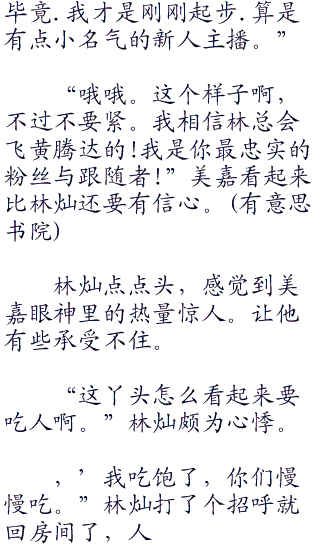 毕竟.我才是刚刚起步.算是
有点小名气的新人主播。”
“哦哦。这个样子啊，
不过不要紧。我相信林总会
飞黄腾达的!我是你最忠实的
粉丝与跟随者!”美嘉看起来
比林灿还要有信心。(有意思
书院)
林灿点点头，感觉到美
嘉眼神里的热量惊人。让他
有些承受不住。
“这丫头怎么看起来要
吃人啊。”林灿颇为心悸。
，’我吃饱了，你们慢
慢吃。”林灿打了个招呼就
回房间了，人